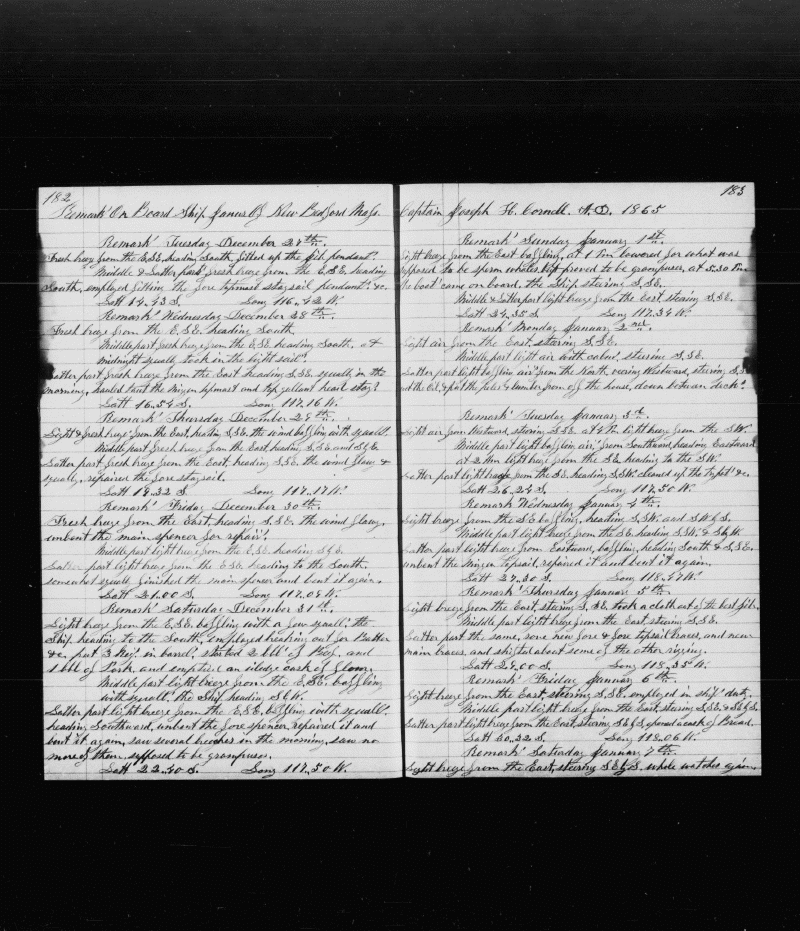 182
Remark's On Board Ship Janus Of New Bedford Mass.
Remark's Tuesday December 27th.
Fresh breeze from the E.S.E. heading South, fitted up the fish pendant.
Middle & Latter part fresh breeze from the E.S.E. heading
South, employed fitting the fore topmast staysail pendants &c.
Latt 14..43 S. Long 116..42 W.
Remark's Wednesday December 28th.
Fresh breeze from the E.S.E. heading South.
Middle part fresh breeze from the E.S.E. heading South, at
midnight squally took in the light sails.
Latter part fresh breeze from the East heading S.S.E. squally in the
morning, hauled taut the mizen topmast and topgallant head stays.
Latt 16..54 S. Long 117.16 W.
Remark's Thursday December 29th.
Light & fresh breeze from the East, heading S.S.E. the wind baffling with squalls.
Middle part fresh breeze from the East, heading S.S.E. and S.b.E.
Latter part fresh breeze from the East, heading S.S.E. the wind flawy &
squally, repaired the fore staysail.
Latt 19..32 S. Long 117..17 W.
Remark's Friday December 30th.
Fresh breeze from the East, heading S.S.E. the wind flawy,
unbent the main spencer for repairs.
Middle part light breeze from the E.S.E. heading S.b.E.
Latter part light breeze from the E.S.E. heading to the South,
somewhat squally finished the main spencer and bent it again.
Latt 21..00 S. Long 117..04 W.
Remark's Saturday December 31st.
Light breeze from the E.S.E. baffling with a few squalls, the
Ship heading to the South, employed breaking out for Butter
&c. put 3 in barrel, started 2 bbls of Beef, and
1 bbl of Pork, and emptied an cask of flour.
Middle part light breeze from the E.S.E. baffling
with squalls, the Ship heading S.b.W.
Latter part light breeze from the E.S.E. baffling with squalls,
heading Southward, unbent the fore spencer, repaired it and
bent it again, saw several breaches in the morning, saw no
more of them, supposed to be grampuses.
Latt 22..40 S. Long 117..50 W.
183
Captain Joseph H. Cornell. A.D. 1865
Remark's Sunday January 1st.
Light breeze from the East baffling, at 1 P.m. lowered for what was
supposed to be sperm whales but proved to be grampuses, at 5.30 P.m.
the boats came on board, the Ship steering S.S.E.
Middle & Latter part light breeze from the East steering S.S.E.
Latt 24..35 S Long 117.34 W.
Remark's Monday January 2nd.
Light air from the East, steering S.S.E.
Middle part light air with calms, steering S.S.E.
Latter part light baffling airs from the North, veering Westward, steering S.S.E.
and the Oil, & put the poles & lumber from off the house, down between decks.
Remark's Tuesday January 3d.
Light air from Westward, steering S.S.E. at 4 P.m. light breeze from the S.W.
Middle part light baffling airs from Southward, heading Eastward
at 2 A.m. light breeze from the S.E. heading to the S.W.
Latter part light breeze from the S.E. heading S.S.W. cleaned up the &c.
Latt 26..24 S. Long 117..50 W.
Remark's Wednesday January 4th.
Light breeze from the S.E. baffling, heading S.S.W. and S.W.b.S.
Middle part light breeze from the S.E. heading S.S.W. & S.b.W.
Latter part light breeze from Eastward, baffling, heading South & S.S.E.
unbent the Mizen Topsail, repaired it and bent it again.
Latt 27..30 S Long 118..47 W.
Remark's Thursday January 5th.
Light breeze from the East, steering S.S.E. took a cloth out of the best jib.
Middle part light breeze from the East, steering S.S.E.
Latter part the same, rove new fore & fore topsail braces, and new
main braces, and shifted about some of the other rigging.
Latt 29.00 S. Long 118..35 W.
Remark's Friday January 6th.
Light breeze from the East, steering S.S.E. employed in ship's duty.
Middle part light breeze from the East steering S.S.E. & S.E.b.S.
Latter part light breeze from the East, steering S.E.b.S. opened a cask of Bread.
Latt 30..32 S. Long 118..06 W.
Remark's Saturday January 7th.
Light breeze from the East, steering S.E.b.S. whole watches again.